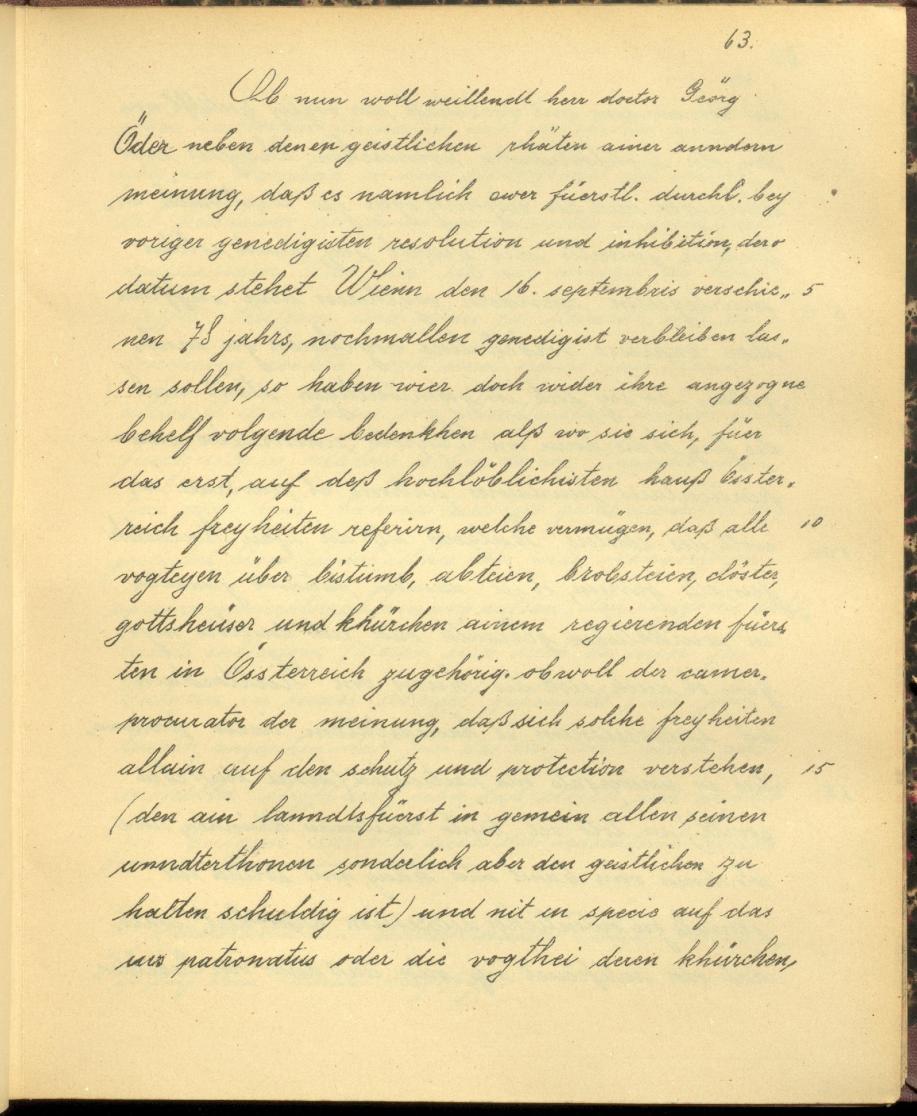 63.
Ob nun woll weillendt herr doctor Geörg
Öder neben denen geistlichen rhäten ainer anndern
meinung, daß es namlich ewer füerstl. durchl. bey
voriger genedigisten resolution und inhibition, dero
datum stehet Wienn den 16. septembris verschie„ 5
nen 78 jahrs, nochmallen genedigist verbleiben las„
sen sollen, so haben wier doch wider ihre angezogne
behelf volgende bedenkhen alß wo sie sich, füer
das erst, auf deß hochlöblichisten haußÖsster„
reich freyheiten referirn, welche vermügen, daß alle 10
vogteyen über bistumb, abteien, brobsteien, clöster,
gottsheüser und khürchen ainem regierenden füers„
ten in Össterreich zugehörig. obwoll der camer„
procurator der meinung, daß sich solche freyheiten
allain auf den schutz und protection verstehen, 15
(den ain lanndtsfüerst in gemein allen seinen
unndterthonen sonderlich aber den geistlichen zu
halten schuldig ist) und nit in specie auf das
ius patronatus oder die vogthei deren khürchen,